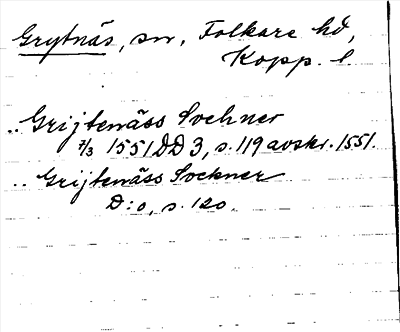 Grytnäs, sn, Folkare hd,
Kopp. l.
.. Grijtenäss Sochner
7/3 1551 DD 3, s. 119 avskr. 1551.
.. Grijtenäss Sockner
D:o, s. 120